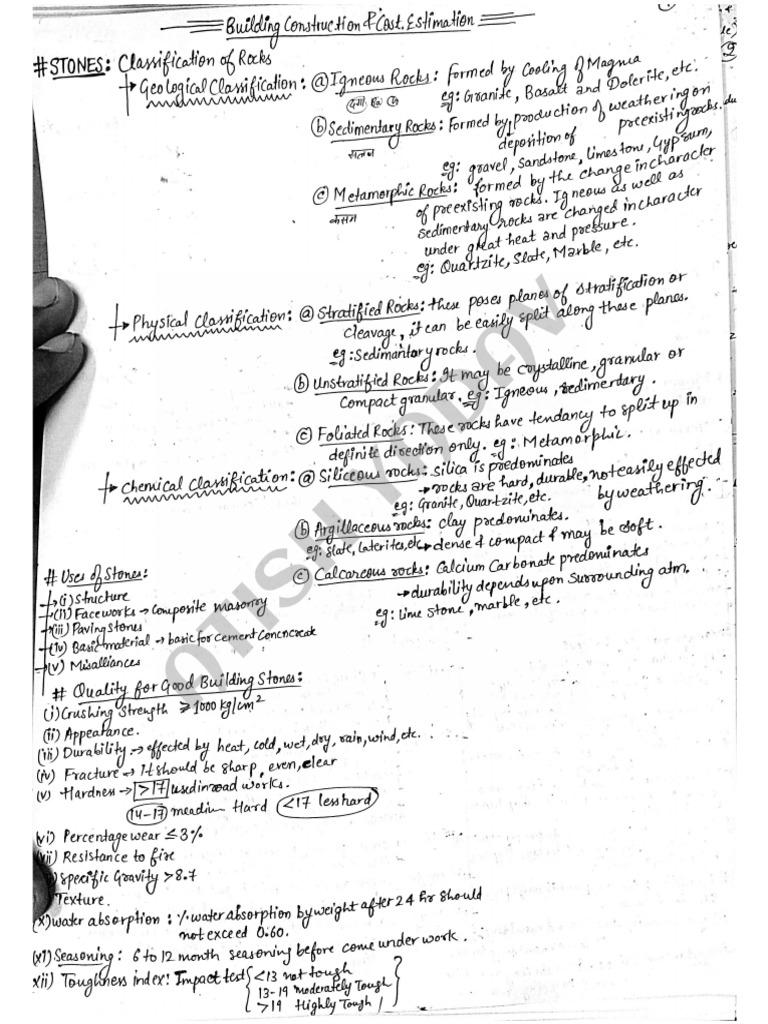 Building Construction & Cost. Estimation
# STONES: Classification of Rocks
→ Geological Classification: ⓐ Igneous Rocks: formed by Cooling of Magma
eg: Granite, Basalt and Dolerite, etc.
ⓑ Sedimentary Rocks: Formed by production of weathering on
deposition of preexisting rocks.
eg: gravel, Sandstone, limestone, Gyprum,
ⓒ Metamorphic Rocks: formed by the change in character
of preexisting rocks. Igneous as well as
sedimentary rocks are changed in character
under great heat and pressure.
eg: Quartzite, Slate, Marble, etc.
→ Physical Classification: ⓐ Stratified Rocks: these poses planes of stratification or
cleavage, it can be easily split along these planes.
eg: Sedimantory rocks.
ⓑ Unstratified Rocks: It may be crystalline, granular or
compact granular, eg: Igneous, sedimentary.
ⓒ Foliated Rocks: These rocks have tendancy to split up in
definite direction only. eg: Metamorphic.
→ Chemical Classification: ⓐ Siliceous rocks: silica is predominates
→ rocks are hard, durable, not easily effected
by weathering.
eg: Granite, Quartzite, etc.
ⓑ Argillaceous rocks: clay predominates.
eg: Slate, Laterites, etc → dense & compact & may be soft.
ⓒ Calcareous rocks: Calcium Carbonate predominates
→ durability depends upon surrounding atm.
eg: Lime stone, marble, etc.
# Uses of Stones:
→ (i) Structure
→ (ii) Face works → composite masonry
→ (iii) Paving stones
→ (iv) Basic material → basic for cement Concncreak
→ (v) Misalliances
# Quality for Good Building Stones:
(i) Crushing Strength ⩾ 1000 kg/cm²
(ii) Appearance.
(iii) Durability → effected by heat, cold, wet, dry, rain, wind, etc.
(iv) Fracture → It should be sharp, even, clear
(v) Hardness → >17 used in road works.
14-17 meadium Hard <17 less hard
vi) Percentage wear ≤ 3%
ii) Resistance to fire
) Specific Gravity > 8.7
Texture.
(x) water absorption: % water absorption by weight after 24 hr should
not exceed 0.60.
(xi) Seasoning: 6 to 12 month seasoning before come under work.
xii) Toughness index: Impact test { <13 not tough
13-19 moderately Tough
>19 Highly Tough }
OTISH YODAV